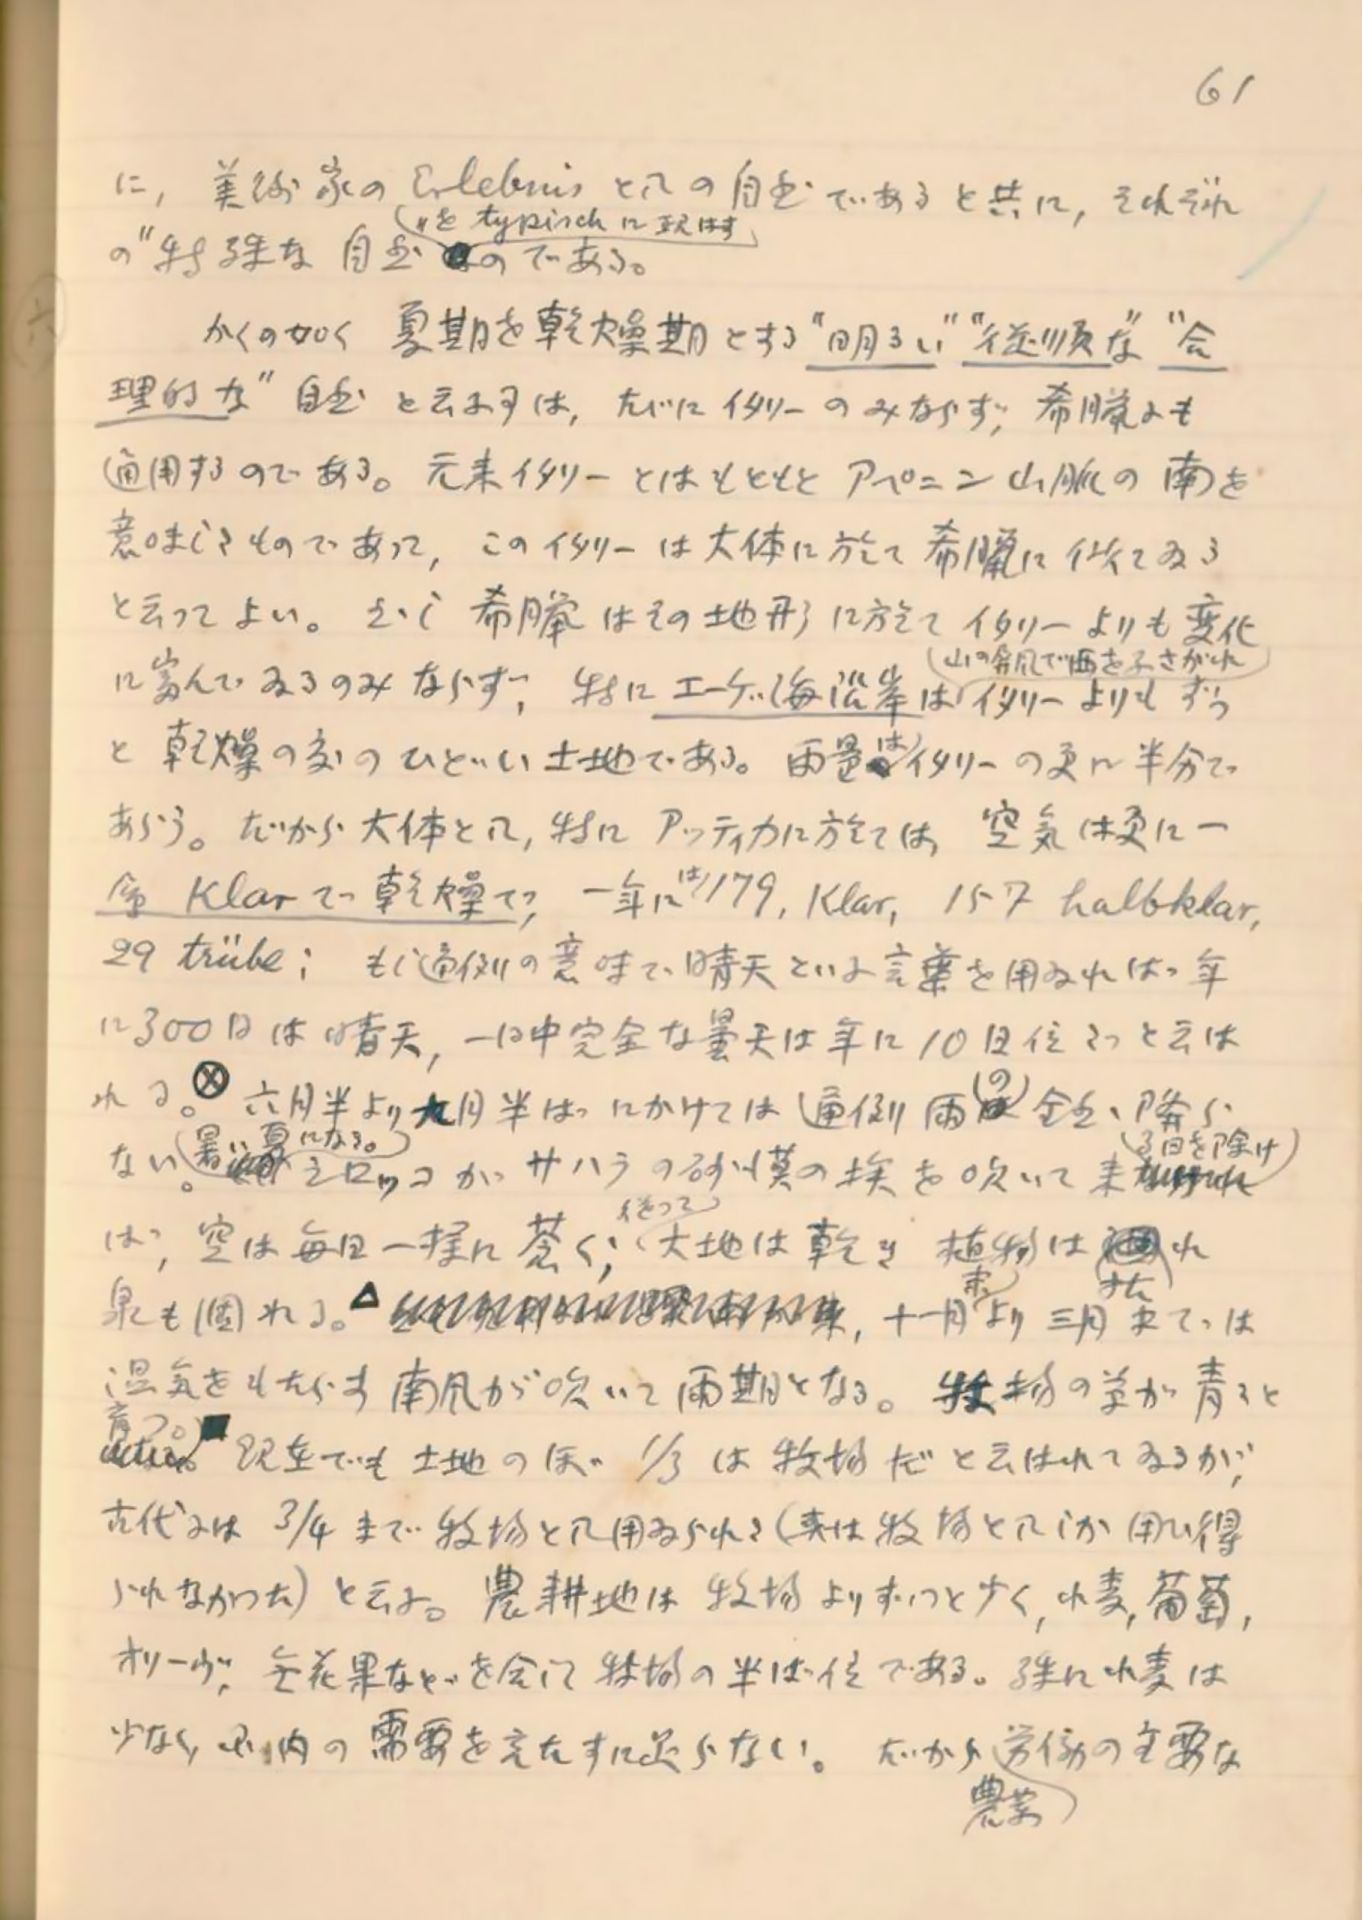 61
に, 美術家の Erlebnis としての自然であると共に, それぞれ
〃を typisch に現はす
の"特殊な自然なのである。
六
かくの如く 夏期を乾燥期とする"明るい""従順な""合
理的な"自然 と云ふ事は, たゞにイタリーのみならず, 希臘にも
通用するのである。元来イタリーとはもともとアペニン山脈の南を
意味したものであつて, このイタリーは大体に於て希臘に似てゐる
と云つてよい。然し希臘はその地形に於てイタリーよりも変化
山の屏風で西をふさがれ
に富んでゐるのみならず, 特にエーゲ海沿岸はイタリーよりもずつ
と乾燥の度のひどい土地である。雨量はイタリーの更に半分で
あらう。だから大体として, 特にアッティカに於ては, 空気は更に一
層 Klar で乾燥で, 一年には179, Klar, 157 halbklar,
29 trübe; もし通例の意味で晴天といふ言葉を用ゐれば年
に300日は晴天, 一日中完全な曇天は年に10日位だと云は
れる。⊗ 六月半より九月半ばにかけては通例雨の全然降ら
暑い夏になる。 る日を除け
ない。シロッコがサハラの砂漠の埃を吹いて来
従つて
ば, 空は毎日一様に蒼く, 大地は乾き 植物は れ
末
泉も涸れる。△ 十一月より三月末では
湿気をもたらす南風が吹いて雨期となる。牧場の草が青々と
育つ。■
現在でも土地のほゞ1/3は牧場だと云はれてゐるが,
古代には3/4まで牧場として用ゐられた(実は牧場としてしか用ひ得
られなかつた)と云ふ。農耕地は牧場よりずつと少く, 小麦, 葡萄,
オリーヴ, 無花果などを合して牧場の半ば位である。殊に小麦は
少なく, 国内の需要を充たすに足らない。だから労働の主要な
農業